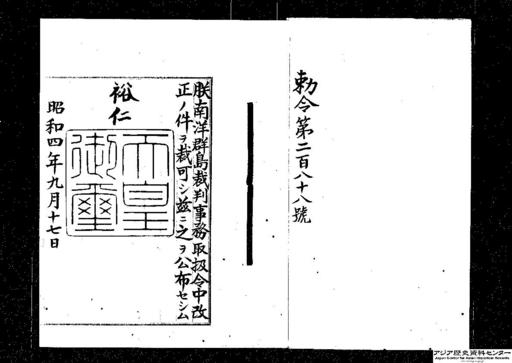 勅令第二百八十八號
朕南洋群島裁判事務取扱令中改
正ノ件ヲ裁可シ茲ニ之ヲ公布セシム
裕仁
天皇
御璽
昭和四年九月十七日
アジア歴史資料センター
Japan Center for Asian Historical Records